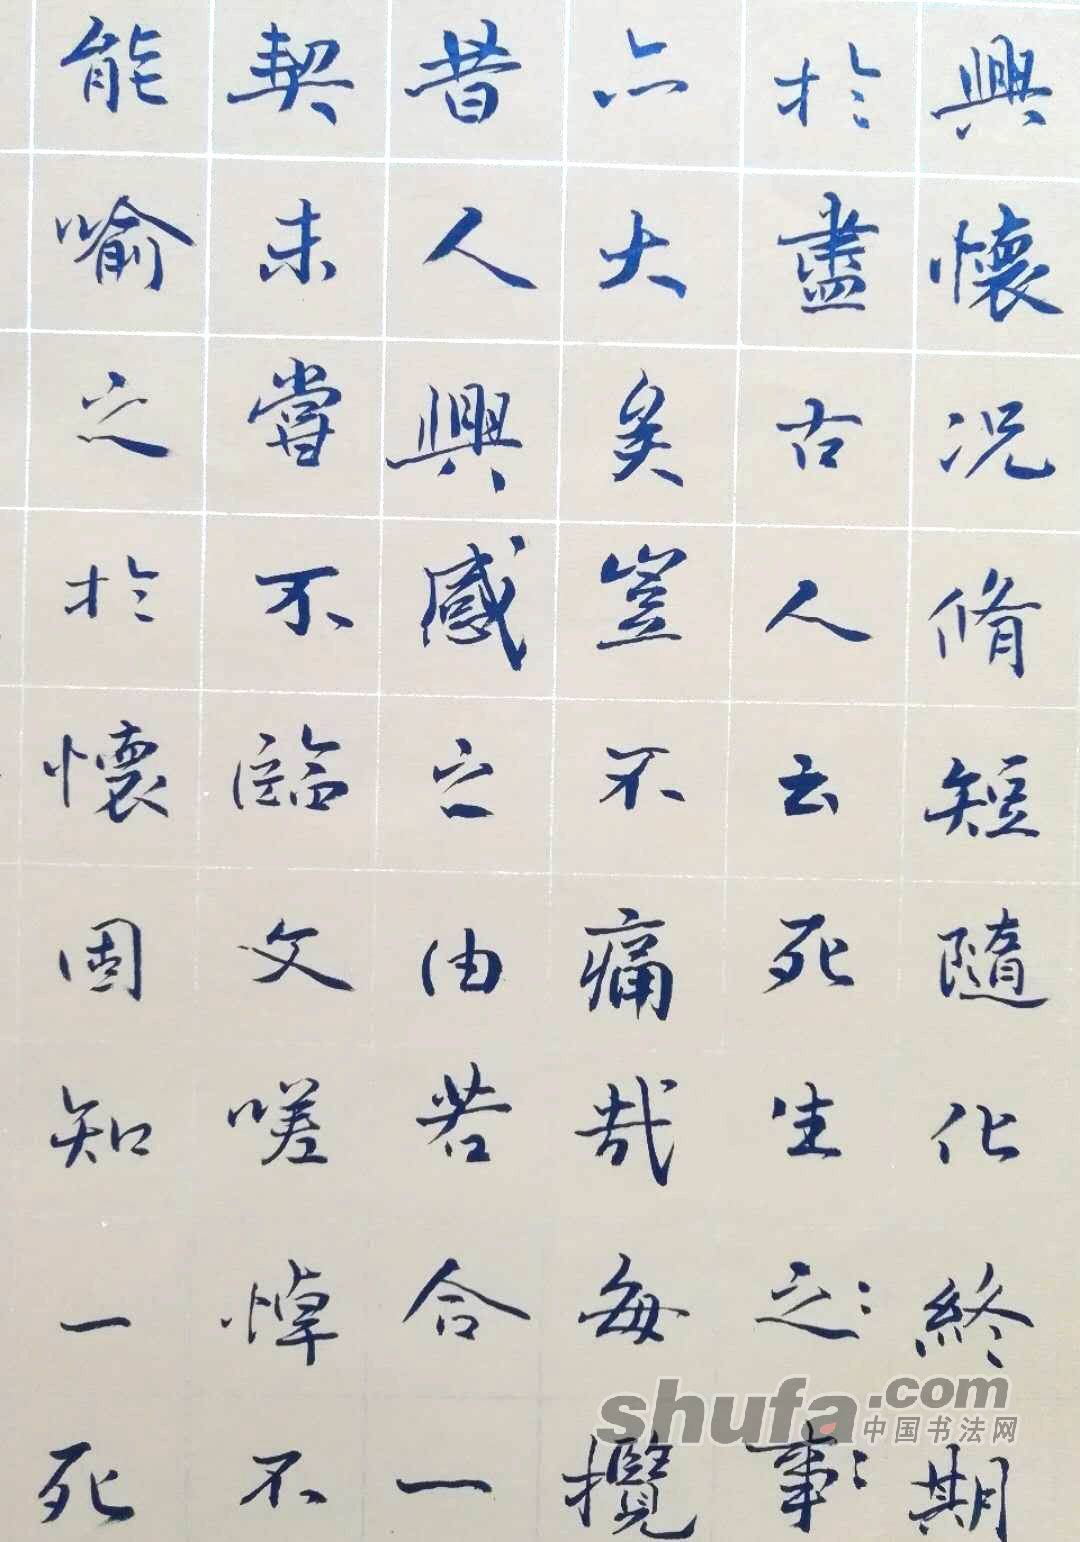 興懷况脩短隨化終期
於盡古人云死生之事
亦大矣豈不痛哉每攬
昔人興感之由若合一
契未嘗不臨文嗟悼不
能喻之於懷固知一死
shufa.com
中国书法网